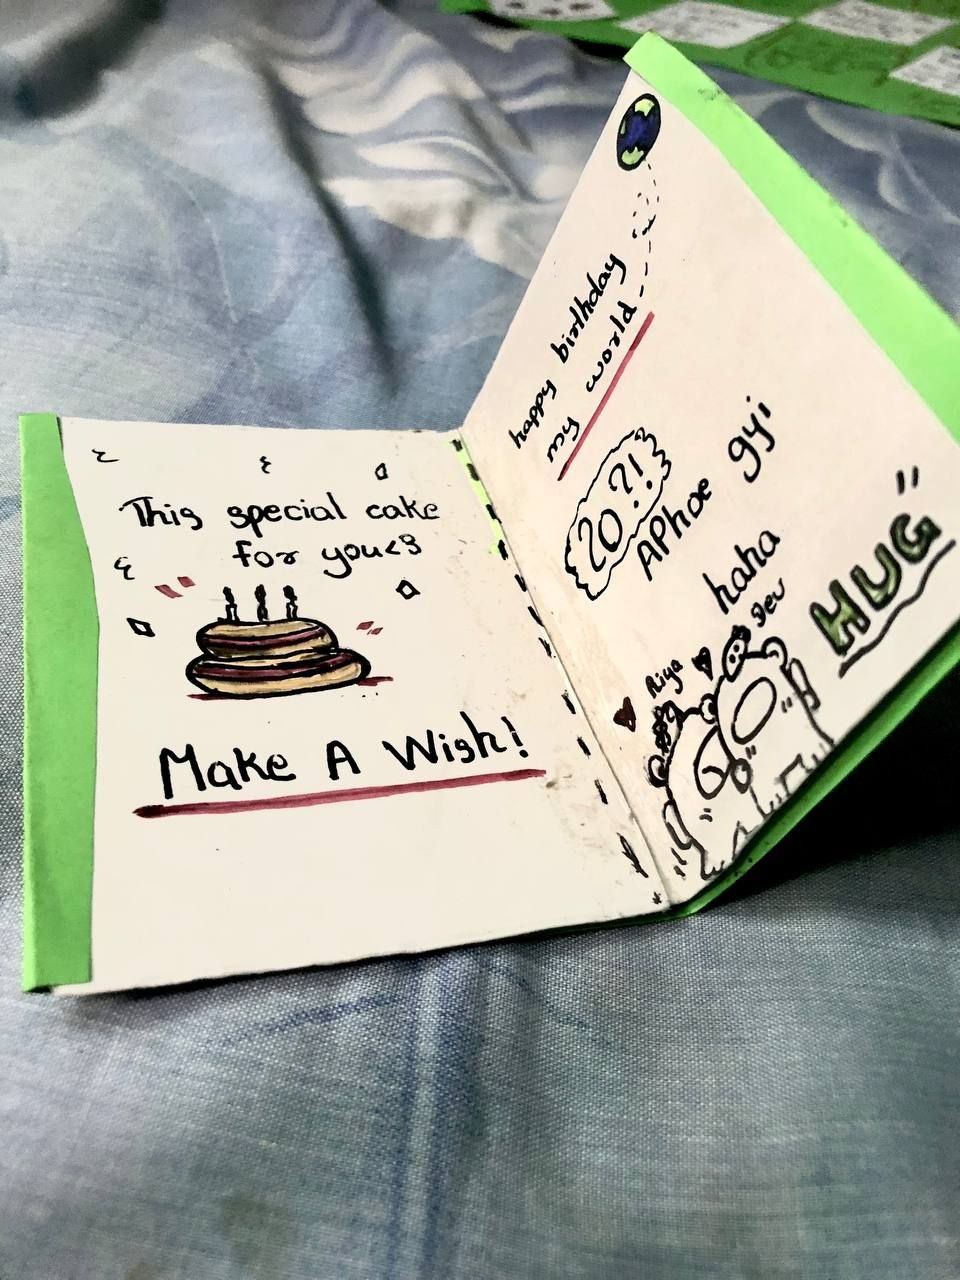 This special cake
for you<3
Make A Wish!
happy birthday
my world
20?!
APhoe gyi
haha
Riya
HUG